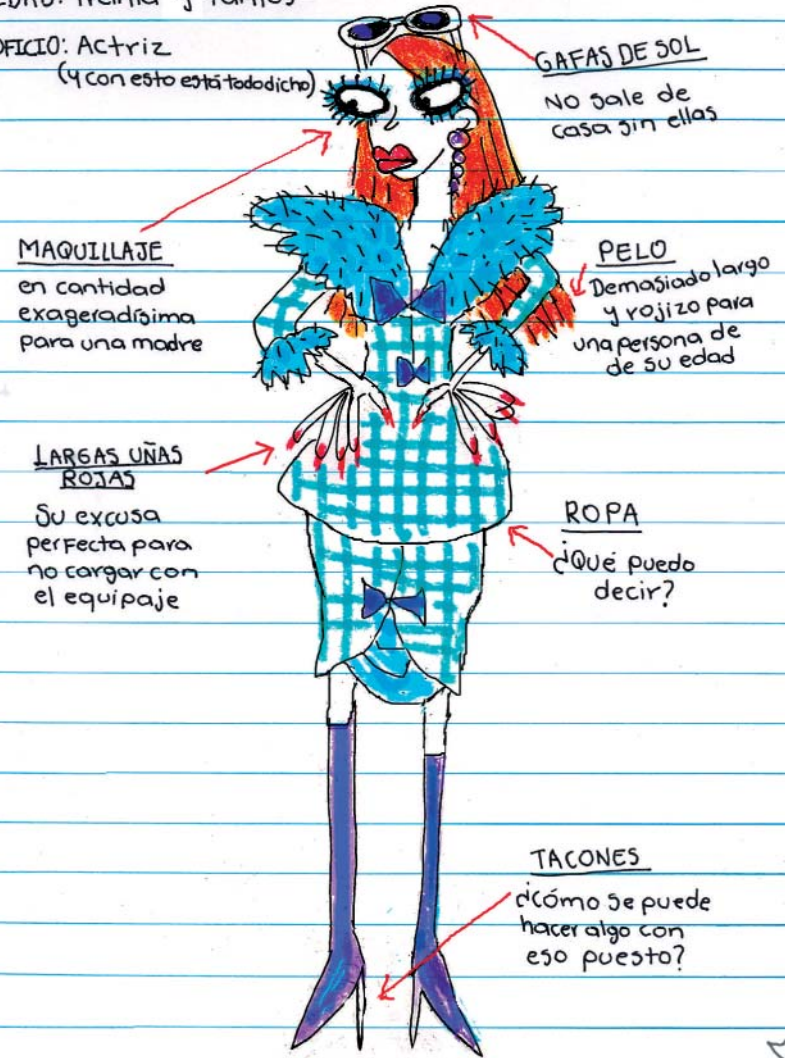 EDAD: Treinta y tantos
OFICIO: Actriz
(y con esto está todo dicho)
GAFAS DE SOL
No sale de
casa sin ellas
MAQUILLAJE
en cantidad
exageradísima
para una madre
PELO
Demasiado largo
y rojizo para
una persona de
de su edad
LARGAS UÑAS
ROJAS
Su excusa
perfecta para
no cargar con
el equipaje
ROPA
¿Qué puedo
decir?
TACONES
¿cómo se puede
hacer algo con
eso puesto?